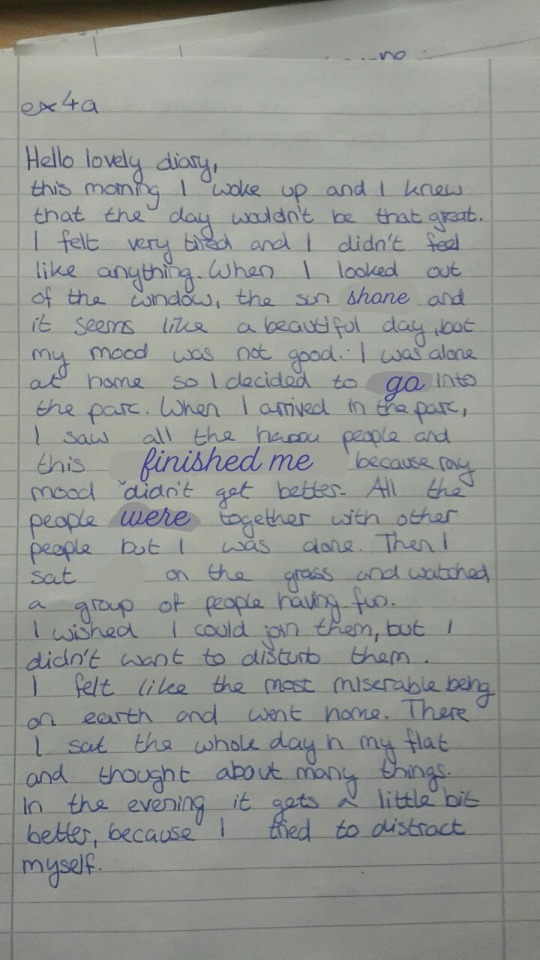 no
ex4a
Hello lovely diary,
this morning I woke up and I knew
that the day wouldn't be that great.
I felt very tired and I didn't feel
like anything. When I looked out
of the window, the sun shone and
it seems like a beautiful day, but
my mood was not good. I was alone
at home so I decided to go into
the parc. When I arrived in the parc,
I saw all the happy people and
this finished me because my
mood didn't get better. All the
people were together with other
people but I was alone. Then I
sat on the grass and watched
a group of people having fun.
I wished I could join them, but I
didn't want to disturb them.
I felt like the most miserable being
on earth and went home. There
I sat the whole day in my flat
and thought about many things.
In the evening it gets a little bit
better, because I tried to distract
myself.